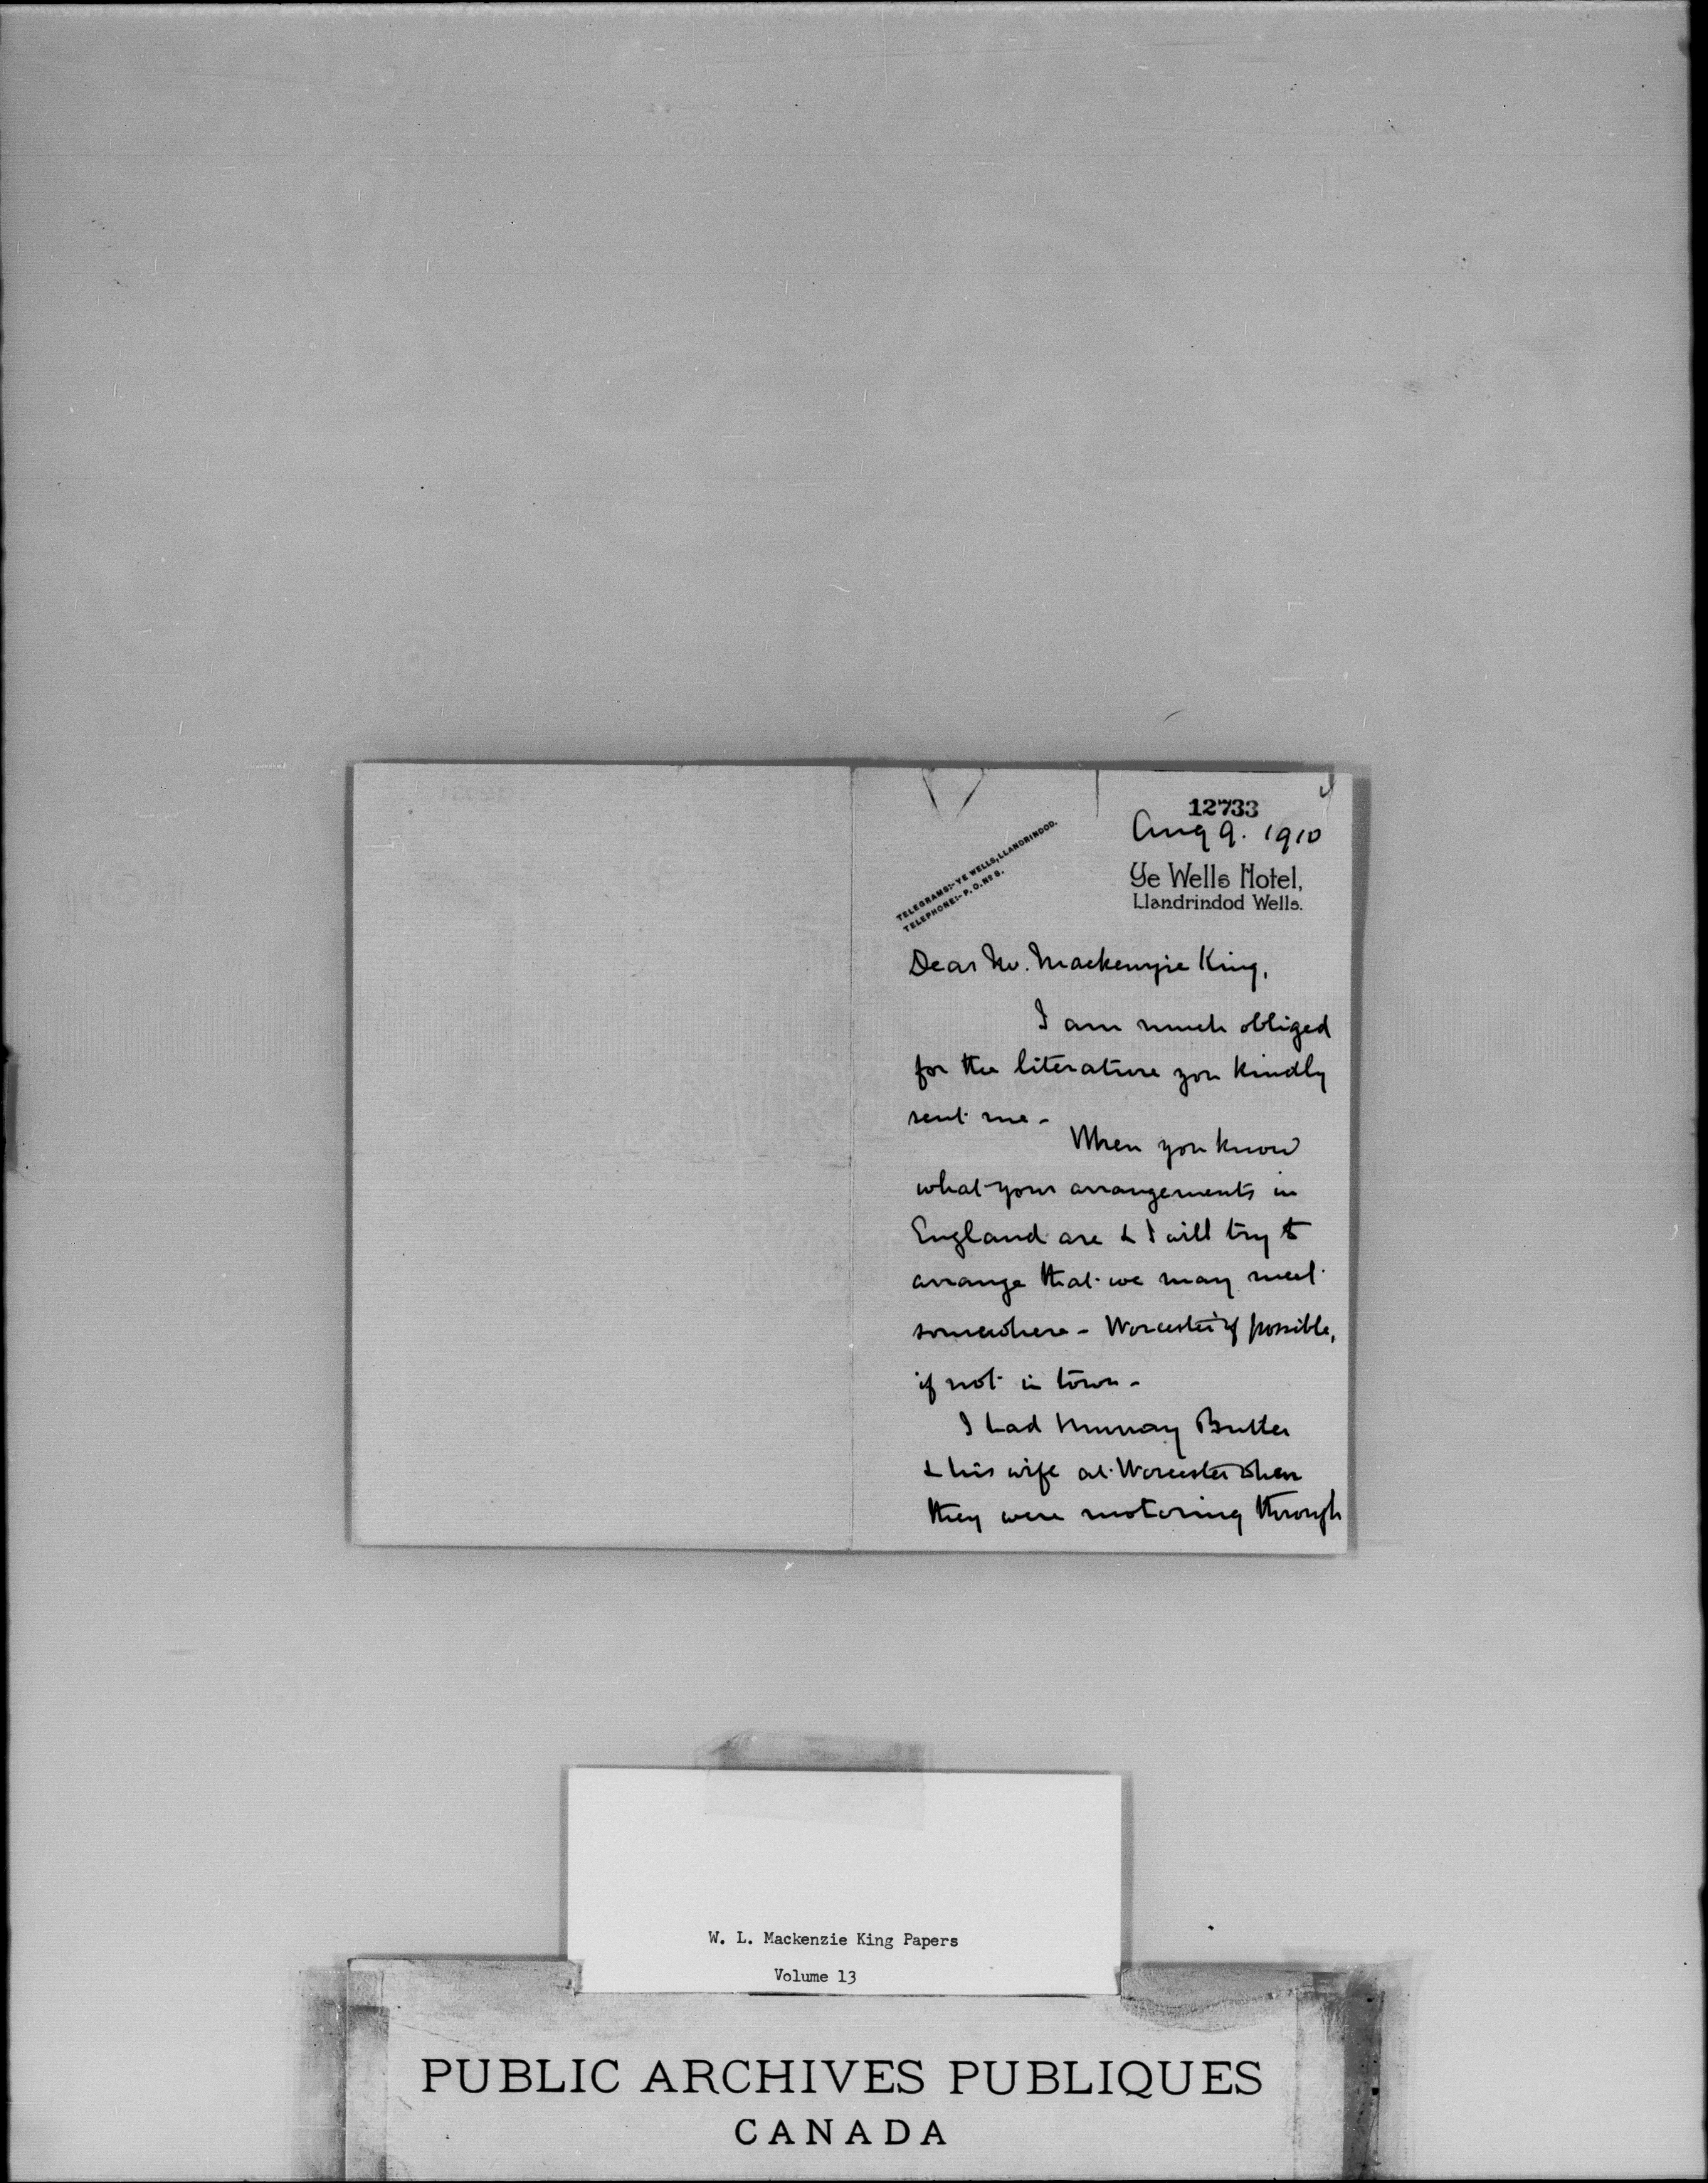 12733
Aug 9. 1910
TELEGRAMS:- YE WELLS, LLANDRINDOD.
TELEPHONE:- P.O. Nº 8.
Ye Wells Hotel,
Llandrindod Wells.
Dear Mr. Mackenzie King,
I am much obliged
for the literature you kindly
sent me -
When you know
what your arrangements in
England are & I will try to
arrange that we may meet
somewhere - Worcester if possible,
if not in town -
I had Murray Butler
& his wife at Worcester when
they were motoring through
W. L. Mackenzie King Papers
Volume 13
PUBLIC ARCHIVES PUBLIQUES
CANADA